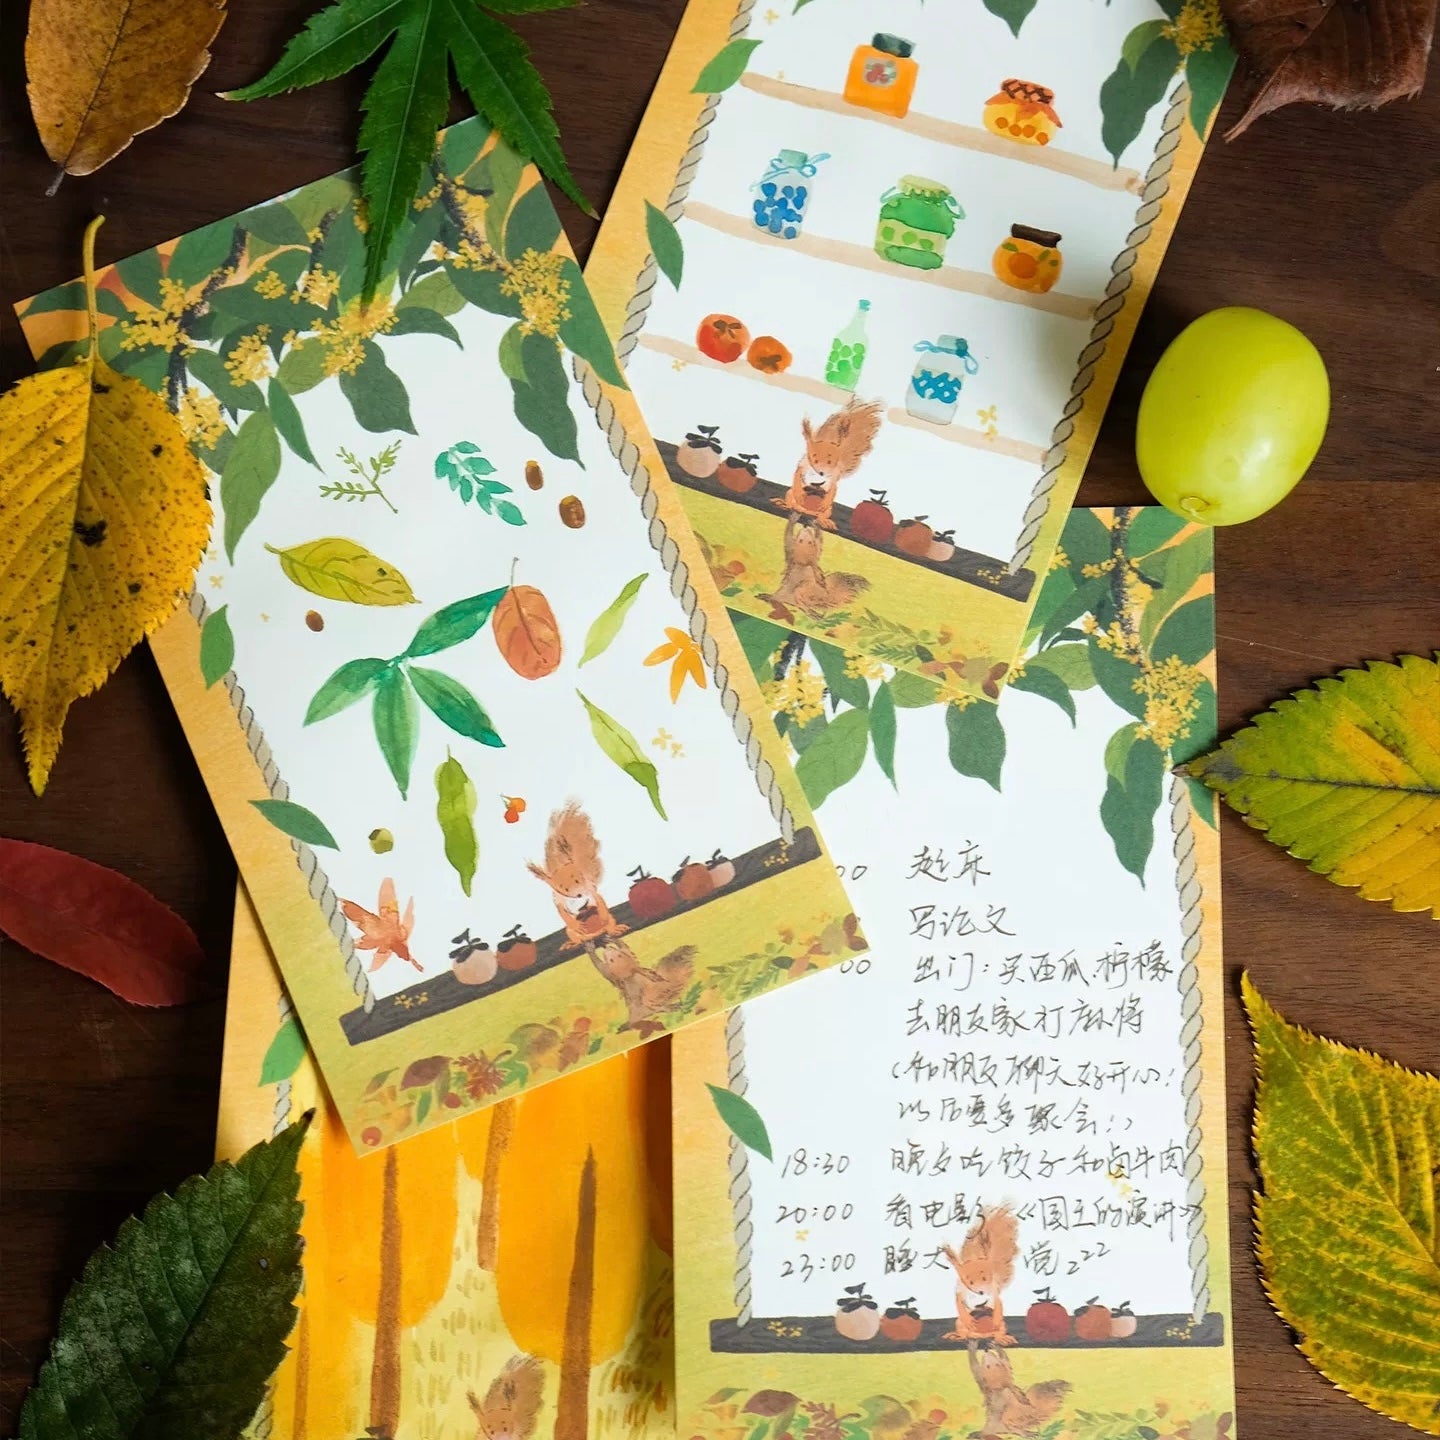 00 起床
写论文
00 出门：买西瓜、柠檬
去朋友家打麻将
（和朋友聊天好开心！
以后要多聚会：）
18:30 晚上吃饺子和卤牛肉
20:00 看电影《国王的演讲》
23:00 睡大觉zzz